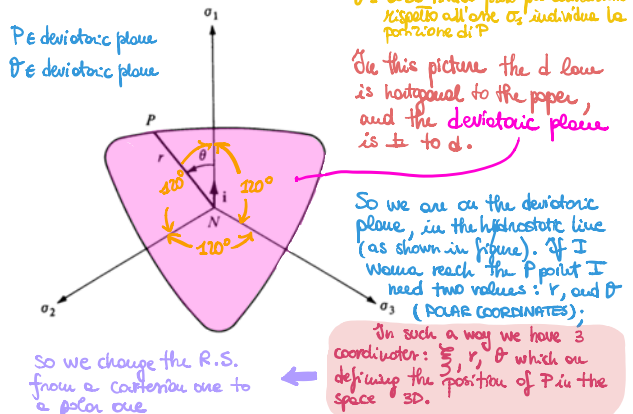 rispetto all'asse σ₁ individua la
posizione di P
P ∈ deviatoric plane
θ ∈ deviatoric plane
In this picture the d line
is hortogonal to the paper,
and the deviatoric plane
is ⊥ to d.
σ₁
P
r
θ
120°
120°
i
N
120°
σ₂
σ₃
So we are on the deviatoric
plane, in the hydrostatic line
(as shown in figure). If I
wanna reach the P point I
need two values: r, and θ
(POLAR COORDINATES);
In such a way we have 3
coordinates: ξ, r, θ which are
defining the position of P in the
space 3D.
So we change the R.S.
from a cartesian one to
a polar one